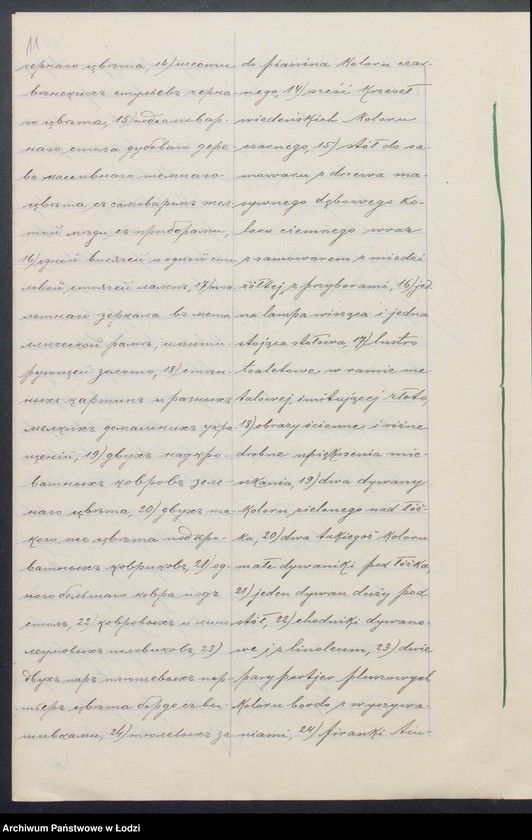 11
чернаго цвѣта, 14) шести
вѣнскихъ стульевъ черна-
го цвѣта, 15) подсамовар-
наго стола дубоваго дере-
ва массивнаго темнаго
цвѣта съ самоваромъ жел-
той мѣди съ приборами,
16) одной висячей и одной сто-
ловой стоячей лампъ, 17) туа-
летнаго зеркала въ мета-
ллической рамѣ, имити-
рующей золото, 18) стѣн-
ныхъ картинъ и разныхъ
мелкихъ домашнихъ укра-
шеній, 19) двухъ надкро-
ватныхъ ковровъ зеле-
наго цвѣта, 20) двухъ та-
кого же цвѣта подкро-
ватныхъ ковриковъ, 21) од-
ного большаго ковра подъ
столъ, 22) ковровыхъ и лино-
леумовыхъ половиковъ, 23)
двухъ паръ плюшевыхъ пор-
тьеръ цвѣта бордо съ вы-
шивками, 24) тюлевыхъ за-
do pianina koloru czar-
nego, 14) sześć krzeseł
wiedeńskich koloru
czarnego, 15) stół do sa-
mowaru z drzewa ma-
sywnego dębowego ko-
loru ciemnego wraz
z samowarem z miedzi
żółtej z przyborami, 16) jed-
na lampa wisząca i jedna
stojąca stołowa, 17) lustro
toaletowe w ramie me-
talowej, imitującej złoto,
18) obrazy ścienne i różne
drobne upiększenia mie-
szkania, 19) dwa dywany
koloru zielonego nad łóż-
ka, 20) dwa takiegoż koloru
małe dywaniki pod łóżka,
21) jeden dywan duży pod
stół, 22) chodniki dywano-
we i z linoleum, 23) dwie
pary portjer pluszowych
koloru bordo z wyszywa-
niami, 24) firanki tiu-
Archiwum Państwowe w Łodzi